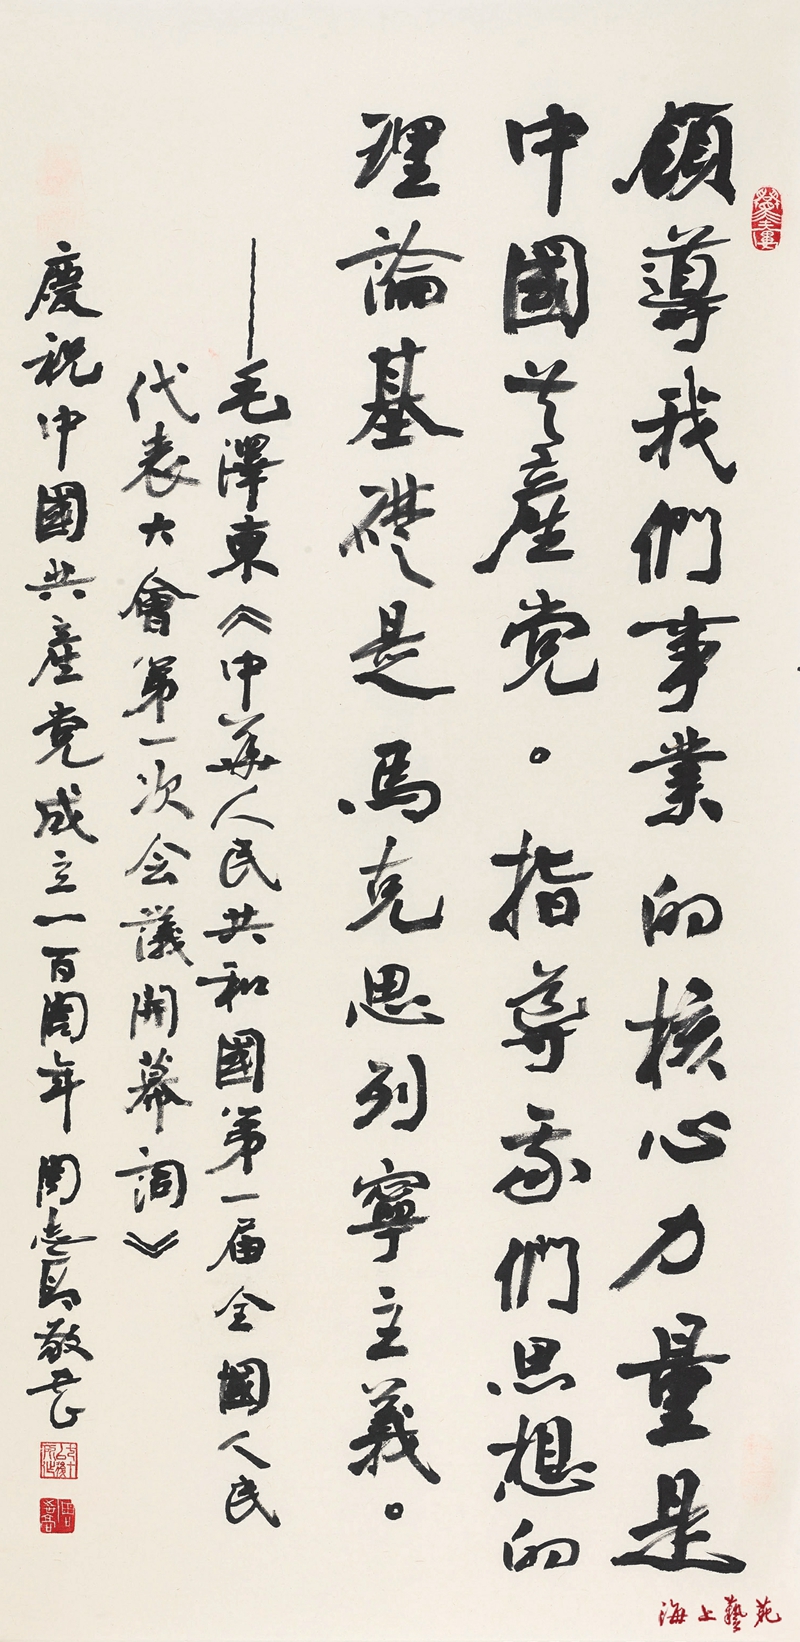 領導我們事業的核心力量是
中國共產党。指導我們思想的
理論基礎是馬克思列寧主義。
——毛澤東《中華人民共和國第一届全國人民
代表大會第一次会議開幕詞》
慶祝中國共產党成立一百周年 周志高敬書
海上藝苑